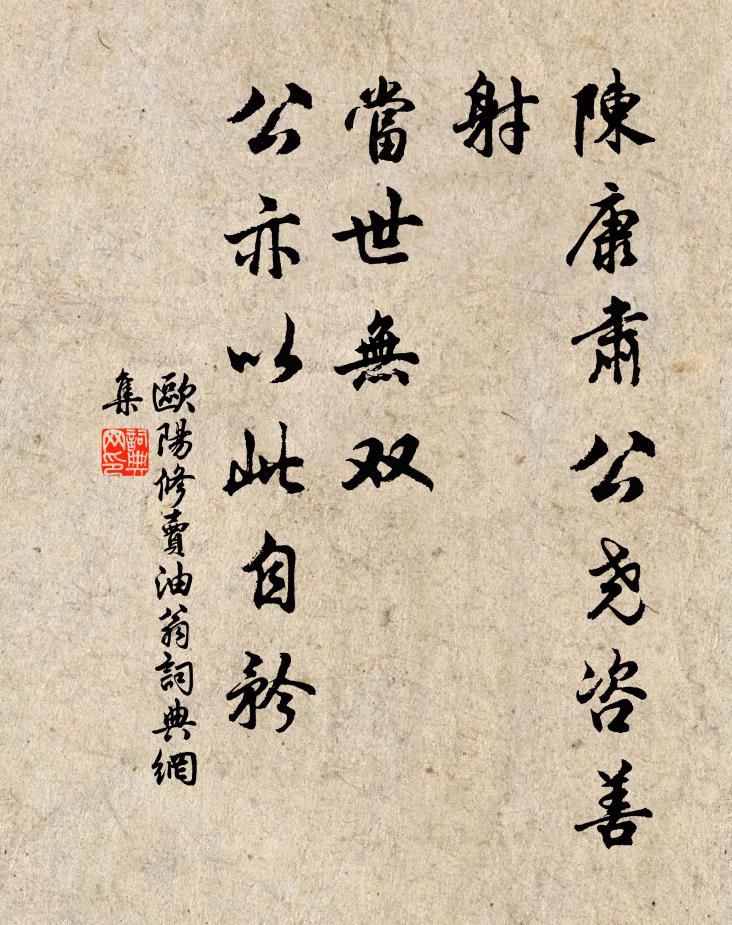 陳康肅公尧咨善
射
當世無双
公亦以此自矜
歐陽修賣油翁詞典網
集
詞典
网印